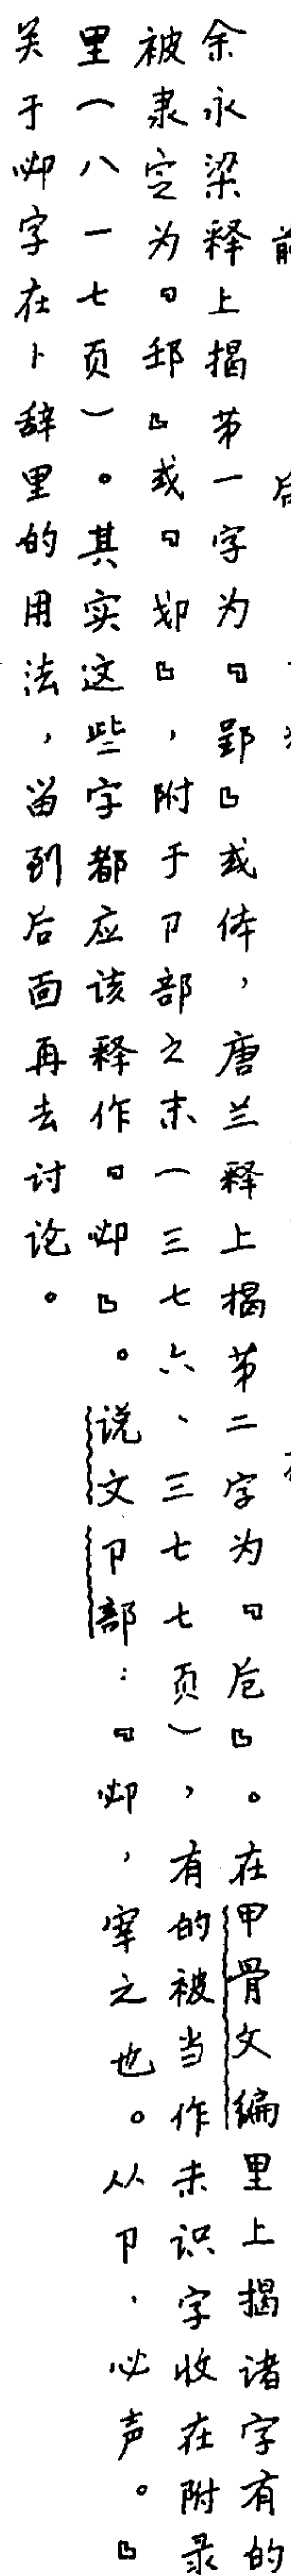 余永梁释上揭第一字为「郢」或体，唐兰释上揭第二字为「卮」。在甲骨文编里上揭诸字有的
被隶定为「邽」或「㔹」，附于卩部之末（三七六、三七七页），有的被当作未识字收在附录
里（八一七页）。其实这些字都应该释作「𠨘」。说文卩部：「𠨘，宰之也。从卩，必声。」
关于𠨘字在卜辞里的用法，留到后面再去讨论。